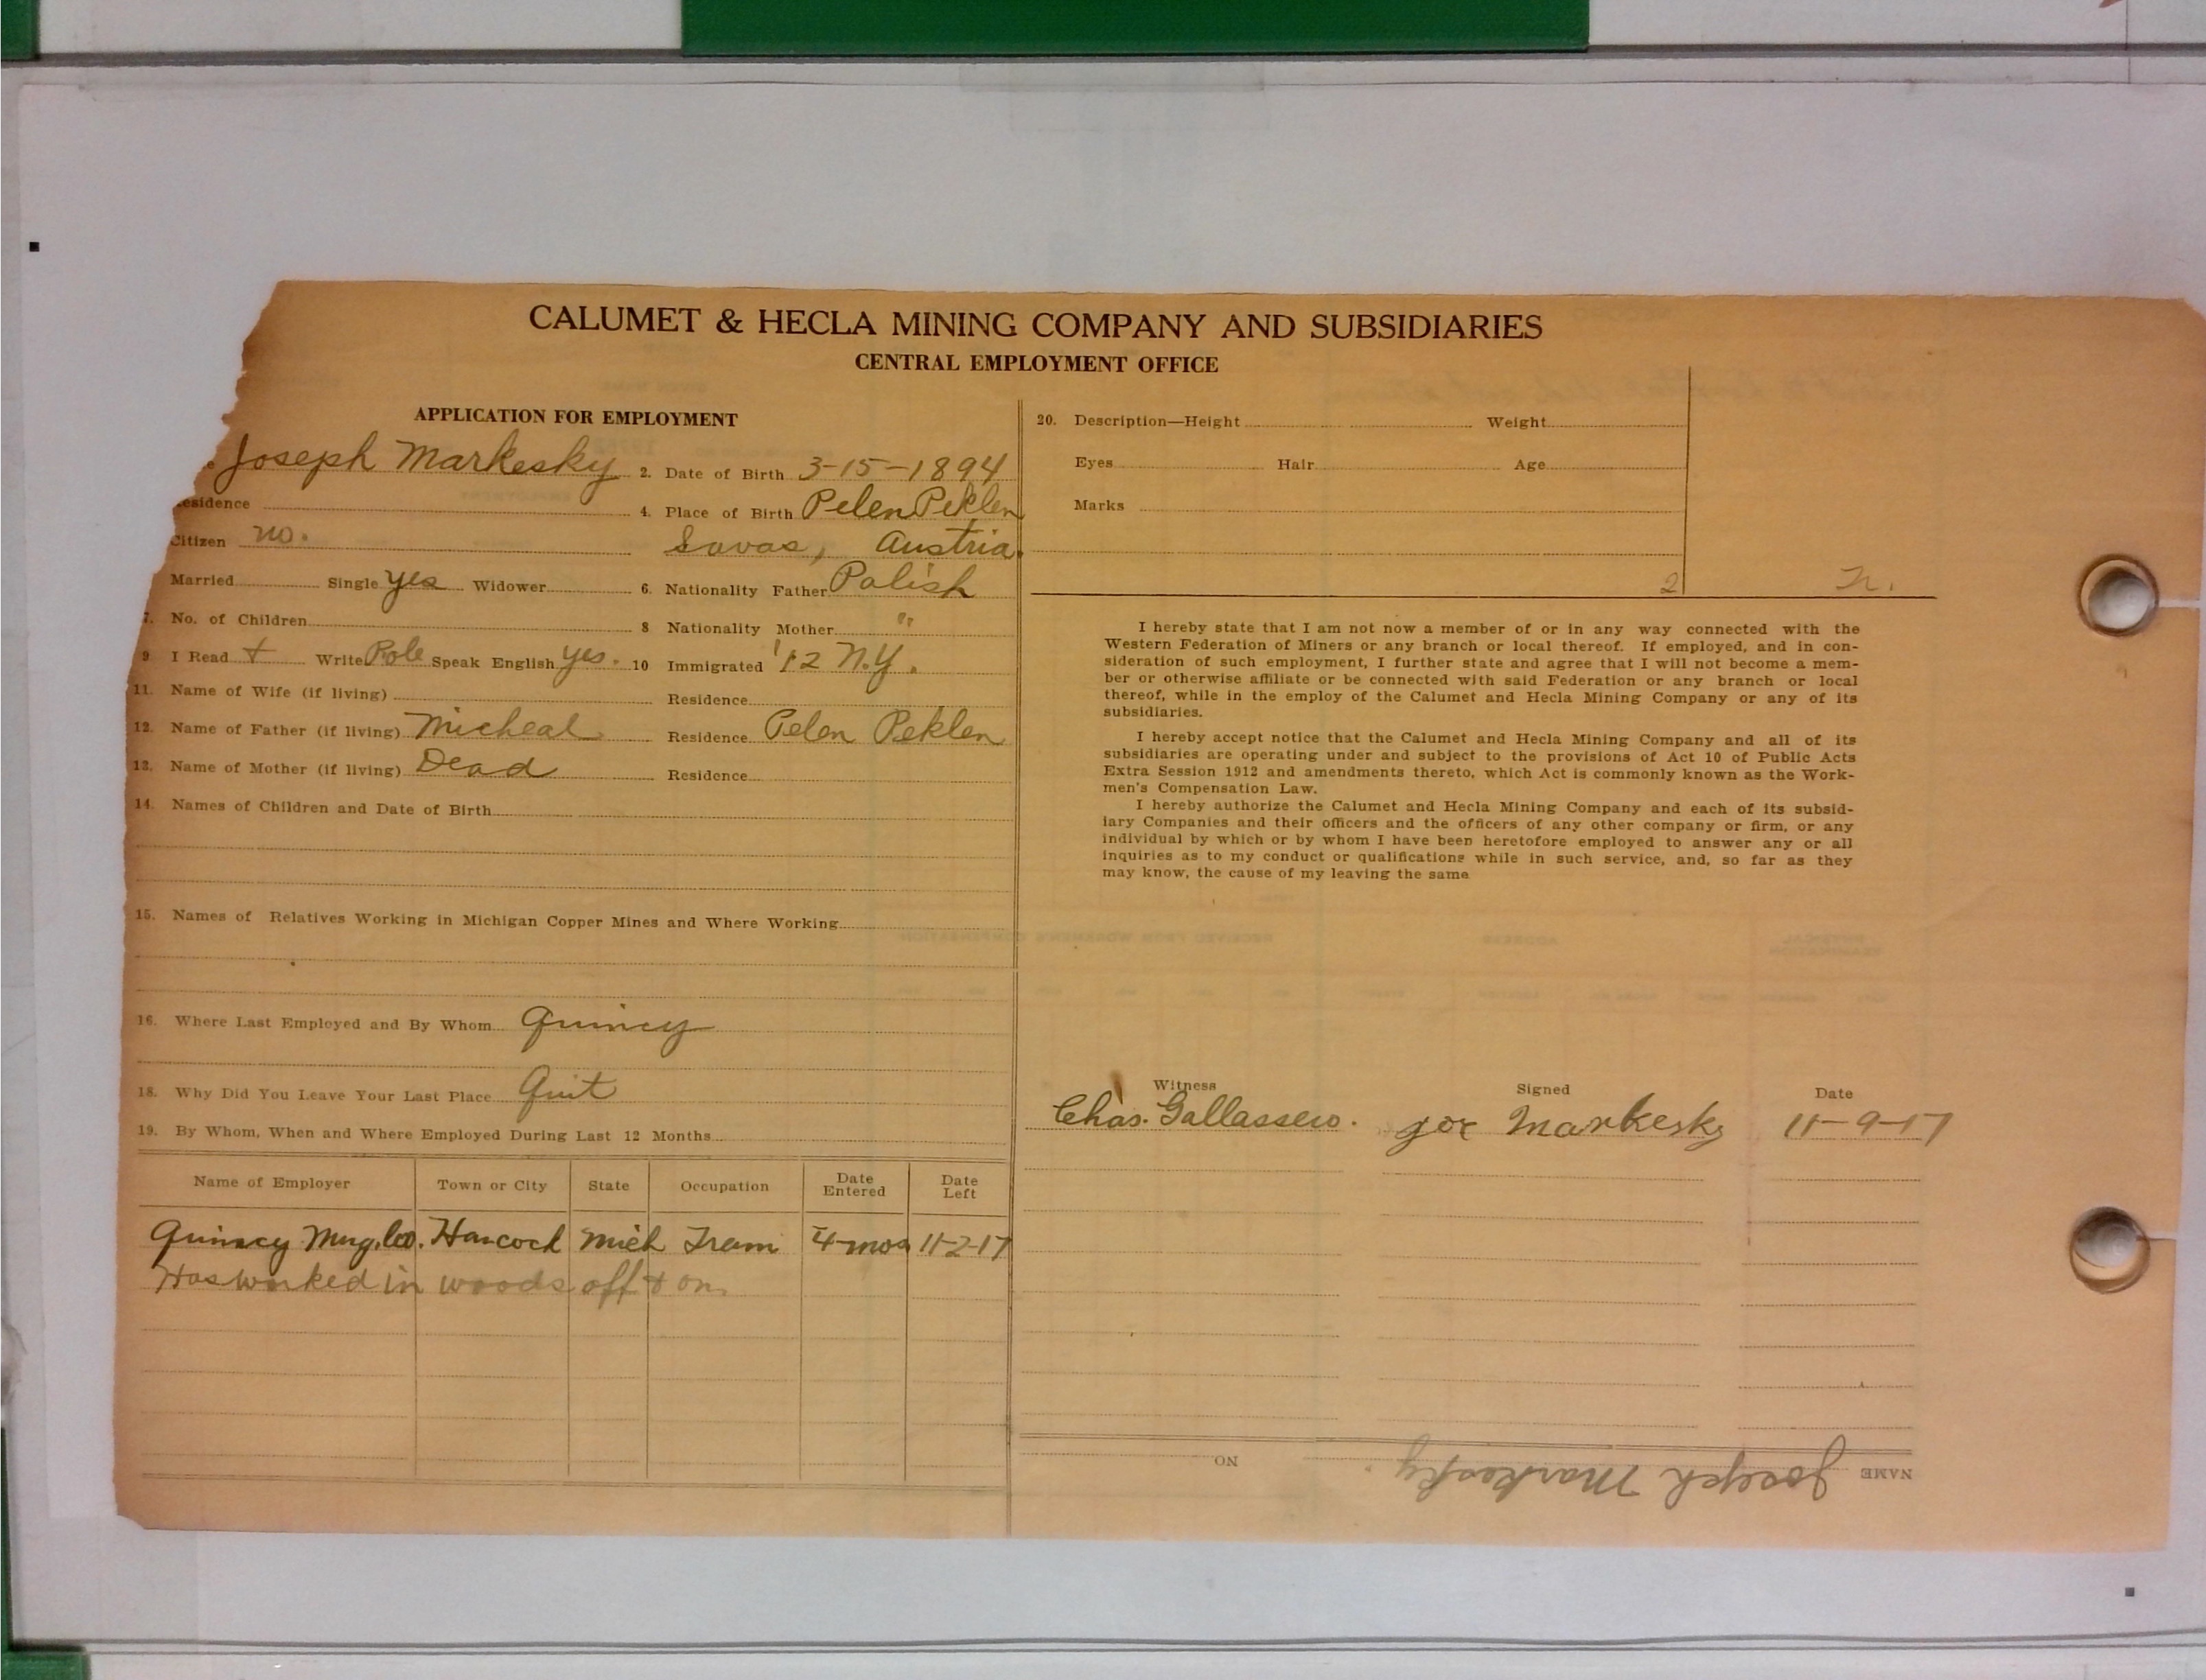 CALUMET & HECLA MINING COMPANY AND SUBSIDIARIES
CENTRAL EMPLOYMENT OFFICE
APPLICATION FOR EMPLOYMENT
e Joseph Markesky 2. Date of Birth 3-15-1894
esidence 4. Place of Birth Pelen Peklen
Citizen no. Savas, Austria.
Married Single yes Widower 6. Nationality Father Polish
7. No. of Children 8 Nationality Mother "
9 I Read + Write Pole Speak English yes. 10 Immigrated '12 N.Y.
11. Name of Wife (if living) Residence
12. Name of Father (if living) Micheal Residence Pelen Peklen
13. Name of Mother (if living) Dead Residence
14. Names of Children and Date of Birth
15. Names of Relatives Working in Michigan Copper Mines and Where Working
16. Where Last Employed and By Whom Quincy
18. Why Did You Leave Your Last Place Quit
19. By Whom, When and Where Employed During Last 12 Months
Name of Employer Town or City State Occupation Date Entered Date Left
Quincy Mng. Co. Hancock Mich Tram 4-mos 11-2-17
Has worked in woods off & on.
20. Description—Height Weight
Eyes Hair Age
Marks
2 n.
I hereby state that I am not now a member of or in any way connected with the
Western Federation of Miners or any branch or local thereof. If employed, and in con-
sideration of such employment, I further state and agree that I will not become a mem-
ber or otherwise affiliate or be connected with said Federation or any branch or local
thereof, while in the employ of the Calumet and Hecla Mining Company or any of its
subsidiaries.
I hereby accept notice that the Calumet and Hecla Mining Company and all of its
subsidiaries are operating under and subject to the provisions of Act 10 of Public Acts
Extra Session 1912 and amendments thereto, which Act is commonly known as the Work-
men's Compensation Law.
I hereby authorize the Calumet and Hecla Mining Company and each of its subsid-
iary Companies and their officers and the officers of any other company or firm, or any
individual by which or by whom I have been heretofore employed to answer any or all
inquiries as to my conduct or qualifications while in such service, and, so far as they
may know, the cause of my leaving the same
Witness Signed Date
Chas. Gallassero. Joe Markesky 11-9-17
NAME Joseph Markesky. NO